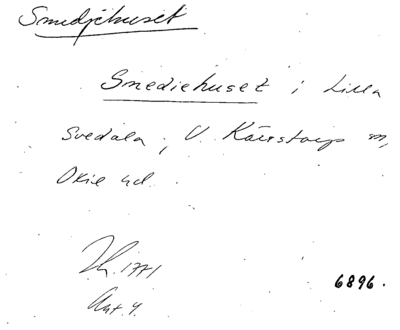 Smedjehuset
Smediehuset i Lilla
Svedala, V. Kärrstorps sn,
Oxie hd.
Jh. 1771
Akt 4.
6896.